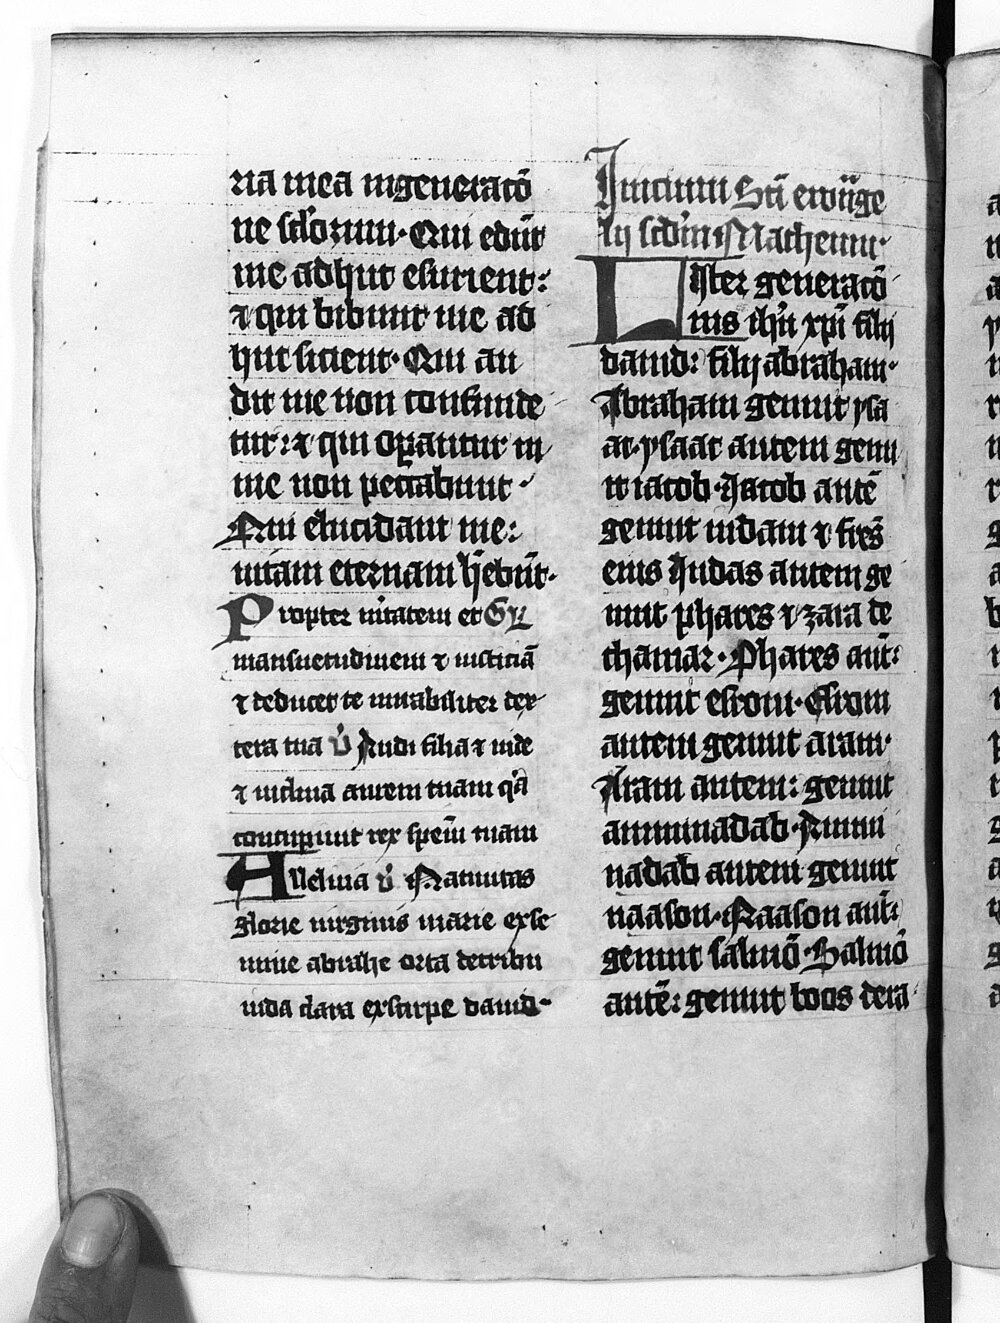 ria mea in generatō
ne sclōrum· Qui edūt
me adhuc esurient:
⁊ qui bibunt me ad
huc sicient· Qui au
dit me non confunde
tur: ⁊ qui opantur in
me non peccabunt·
Qui elucidant me:
uitam eternam hēbūt·
Propter uitatem et Gr
mansuetudinem ⁊ iusticiā
⁊ deducet te mirabiliter dex
tera tua v̄ Audi filia ⁊ uide
⁊ inclina aurem tuam qa
concupiuit rex speciē tuam
Alleluia v̄ Natiuitas
glorie uirginis marie ex se
mine abrahe orta de tribu
iuda clara ex stirpe dauid·
Inicium Sti ewāge
lij scdm Matheum·
Liber generacō
nis ihu xpi filij
dauid: filij abraham·
Abraham genuit ysa
ac· ysaac autem genu
it iacob· Jacob autē
genuit iudam ⁊ frēs
eius Judas autem ge
nuit phares ⁊ zara de
thamar· Phares aut:
genuit esrom· Esrom
autem genuit aram·
Aram autem: genuit
aminadab· Amni
nadab autem genuit
naason· Naason aut:
genuit salmō· Salmō
autē: genuit boos de ra